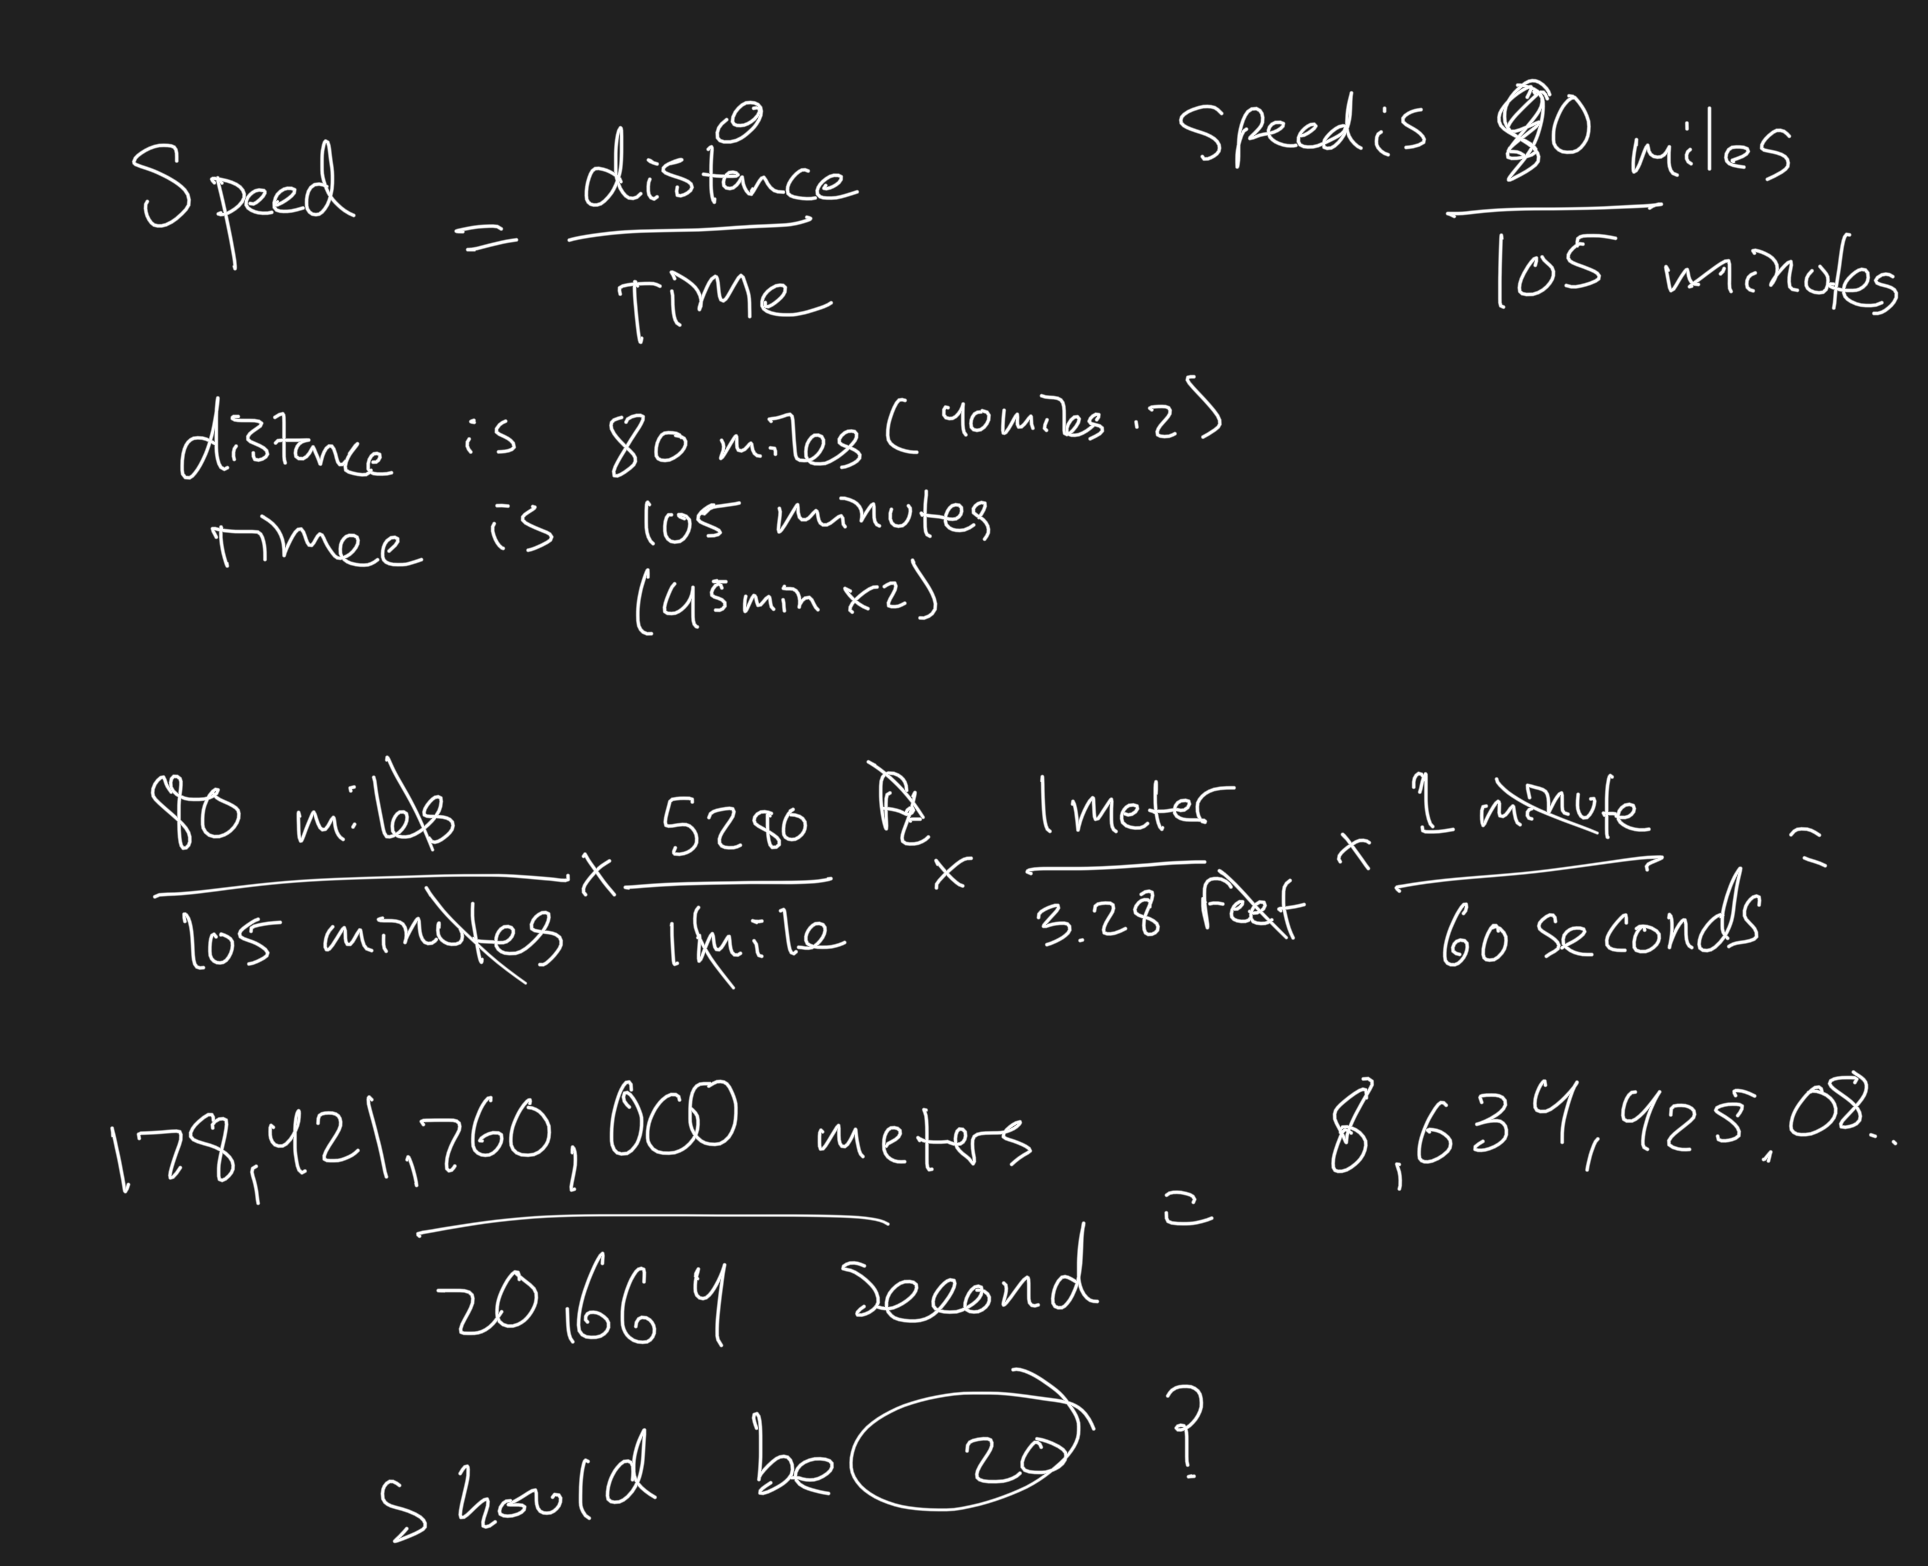 Speed = distance / Time
Speed is 80 miles / 105 minutes
distance is 80 miles (40 miles · 2)
Timee is 105 minutes
(45 min x 2)
80 miles / 105 minutes x 5280 ft / 1 mile x 1 meter / 3.28 feet x 1 minute / 60 seconds =
178,421,760,000 meters / 20,664 second = 8,634,425.08..
should be 20 ?